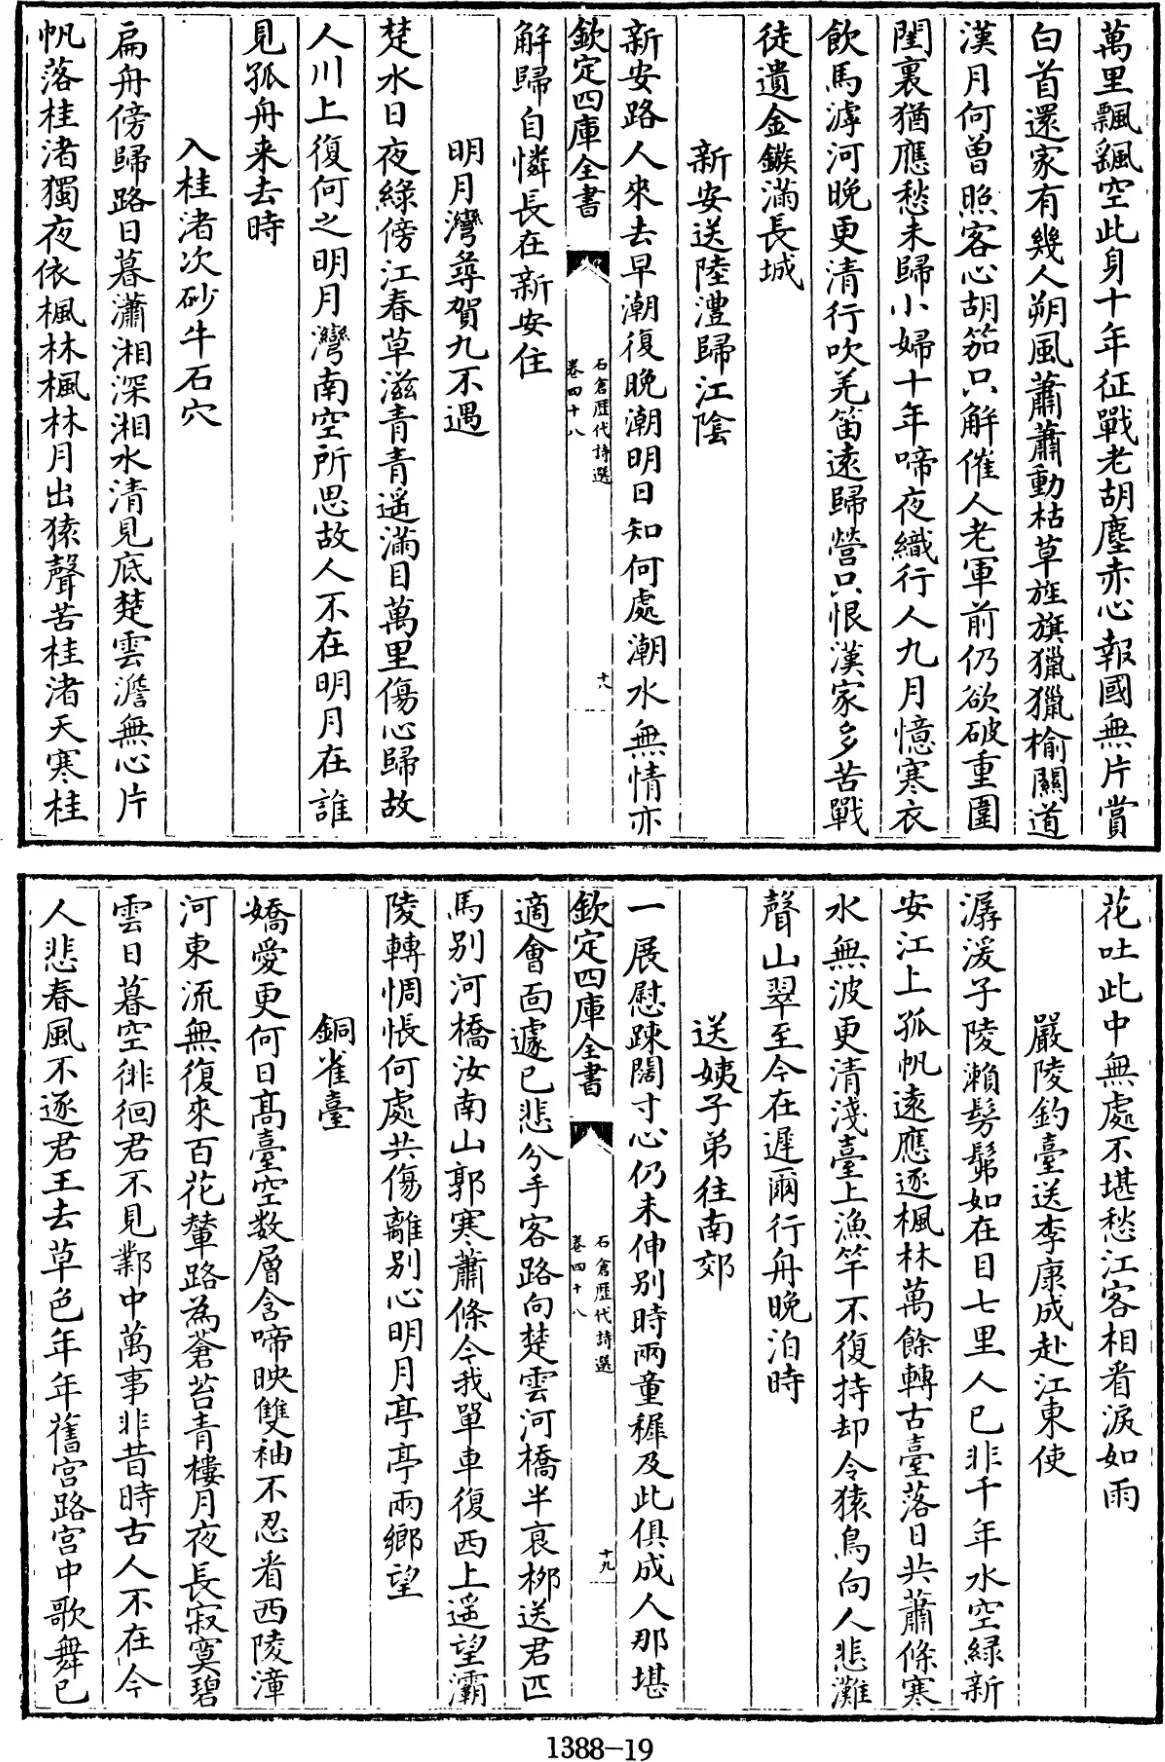 萬里飄颻空此身十年征戰老胡塵赤心報國無片賞
白首還家有幾人朔風蕭蕭動枯草旌旗獵獵榆關道
漢月何曾照客心胡笳只解催人老軍前仍欲破重圍
閨裏猶應愁未歸小婦十年啼夜織行人九月憶寒衣
飲馬滹河晚更清行吹羌笛遠歸營只恨漢家多苦戰
徒遺金鏃滿長城
新安送陸澧歸江陰
新安路人來去早潮復晚潮明日知何處潮水無情亦
欽定四庫全書
石倉歷代詩選
卷四十八
十八
解歸自憐長在新安住
明月灣尋賀九不遇
楚水日夜綠傍江春草滋青青遥滿目萬里傷心歸故
人川上復何之明月灣南空所思故人不在明月在誰
見孤舟来去時
入桂渚次砂牛石穴
扁舟傍歸路日暮瀟湘深湘水清見底楚雲澹無心片
帆落桂渚獨夜依楓林楓林月出猿聲苦桂渚天寒桂
花吐此中無處不堪愁江客相看淚如雨
嚴陵釣臺送李康成赴江東使
潺湲子陵瀨髣髴如在目七里人已非千年水空緑新
安江上孤帆遠應逐楓林萬餘轉古臺落日共蕭條寒
水無波更清淺臺上漁竿不復持却令猿鳥向人悲灘
聲山翠至今在遲爾行舟晚泊時
送姨子弟往南郊
一展慰踈闊寸心仍未伸别時兩童穉及此俱成人那堪
欽定四庫全書
石倉歷代詩選
卷四十八
十九
適會面遽已悲分手客路向楚雲河橋半哀栁送君匹
馬别河橋汝南山郭寒蕭條今我單車復西上遥望灞
陵轉惆悵何處共傷離别心明月亭亭兩鄉望
銅雀臺
嬌愛更何日髙臺空数層含啼映雙袖不忍看西陵漳
河東流無復來百花輦路為蒼苔青樓月夜長寂寞碧
雲日暮空徘徊君不見鄴中萬事非昔時古人不在今
人悲春風不逐君王去草色年年舊宫路宫中歌舞已
1388-19